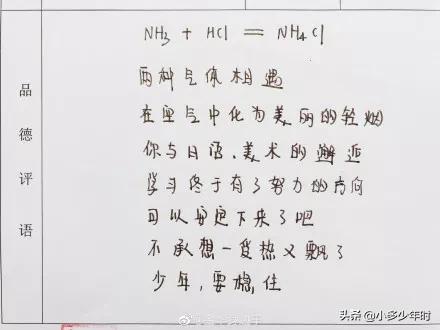 NH3 + HCl = NH4Cl
两种气体相遇
在空气中化为美丽的轻烟
你与日语、美术的邂逅
学习终于有了努力的方向
可以安定下来了吧
不承想一受热又飘了
少年，要稳住
品德评语
头条 @小多少年时